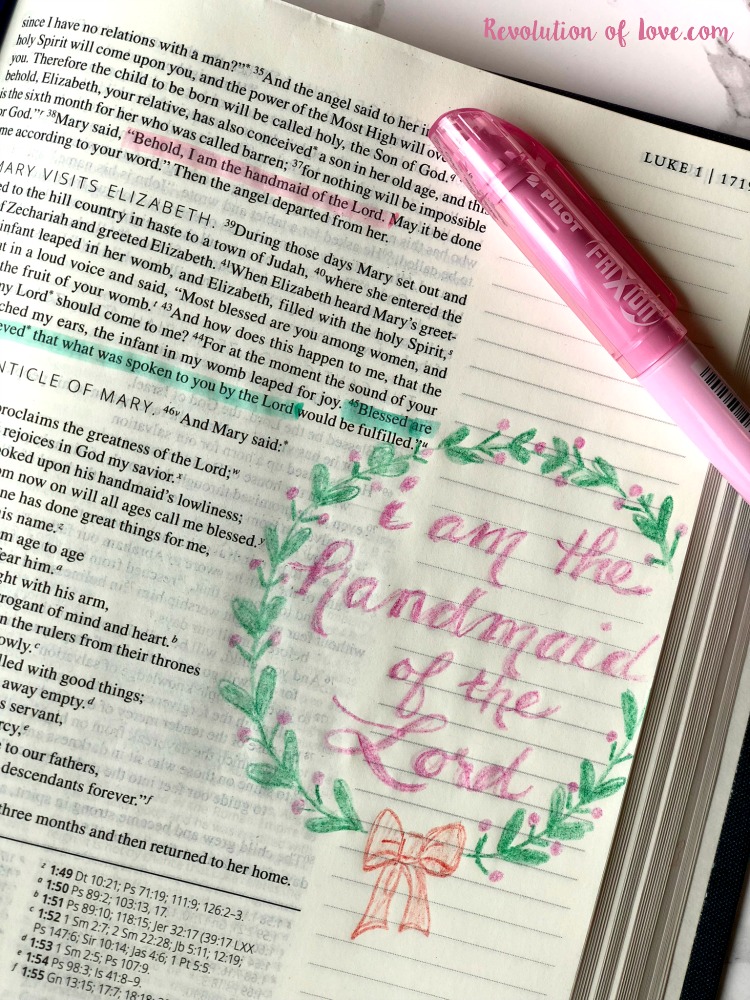 Revolution of love.com
LUKE 1 | 1719
since I have no relations with a man?"* 35And the angel said to her
holy Spirit will come upon you, and the power of the Most High will
you. Therefore the child to be born will be called holy, the Son of God.q
behold, Elizabeth, your relative, has also conceived* a son in her old age, and
is the sixth month for her who was called barren; 37for nothing will be impossible
or God."r 38Mary said, "Behold, I am the handmaid of the Lord. May it be done
me according to your word." Then the angel departed from her.
MARY VISITS ELIZABETH. 39During those days Mary set out and
ed to the hill country in haste to a town of Judah, 40where she entered the
of Zechariah and greeted Elizabeth. 41When Elizabeth heard Mary's greet-
infant leaped in her womb, and Elizabeth, filled with the holy Spirit,s
t in a loud voice and said, "Most blessed are you among women, and
the fruit of your womb.t 43And how does this happen to me, that the
my Lord* should come to me? 44For at the moment the sound of your
ched my ears, the infant in my womb leaped for joy. 45Blessed are
eved* that what was spoken to you by the Lord would be fulfilled."u
NTICLE OF MARY. 46v And Mary said:*
proclaims the greatness of the Lord;w
rejoices in God my savior.x
ooked upon his handmaid's lowliness;
om now on will all ages call me blessed.y
ne has done great things for me,
his name.z
m age to age
fear him.a
ght with his arm,
rrogant of mind and heart.b
n the rulers from their thrones
owly.c
lled with good things;
away empty.d
s servant,
rcy.e
to our fathers,
descendants forever."f
three months and then returned to her home.
z 1:49 Dt 10:21; Ps 71:19; 111:9; 126:2–3.
a 1:50 Ps 89:2; 103:13, 17.
b 1:51 Ps 89:10; 118:15; Jer 32:17 (39:17 LXX
c 1:52 1 Sm 2:7; 2 Sm 22:28; Jb 5:11; 12:19;
Ps 147:6; Sir 10:14; Jas 4:6; 1 Pt 5:5.
d 1:53 1 Sm 2:5; Ps 107:9.
e 1:54 Ps 98:3; Is 41:8–9.
f 1:55 Gn 13:15; 17:7; 18:18;
i am the
handmaid
of the
Lord
PILOT
FRIXION